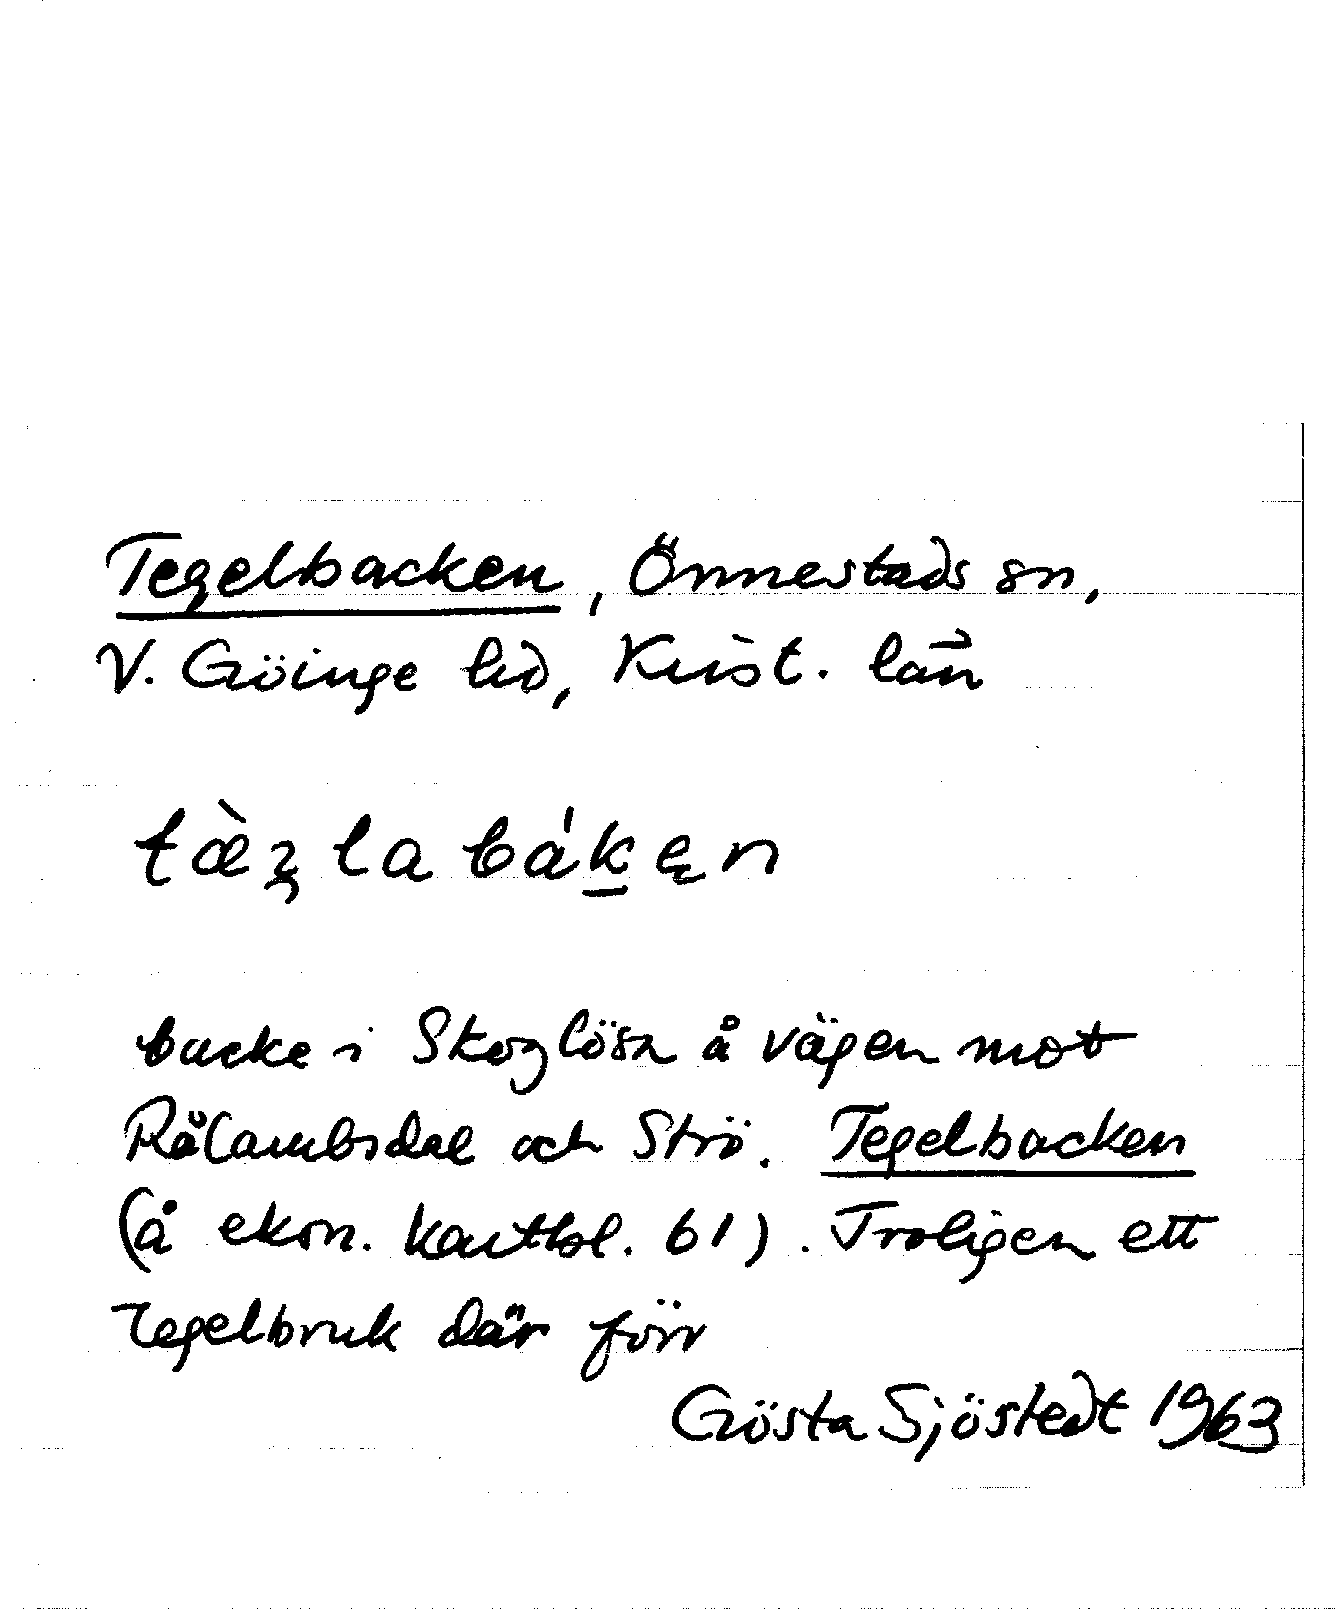 Tegelbacken, Önnestads sn,
V. Göinge hd, Krist. län
tæ̀ʒlabák̲ęn
backe i Skoglösa å vägen mot
Rålambsdal och Strö. Tegelbacken
(å ekon. kartbl. 61). Troligen ett
tegelbruk där förr
Gösta Sjöstedt 1963